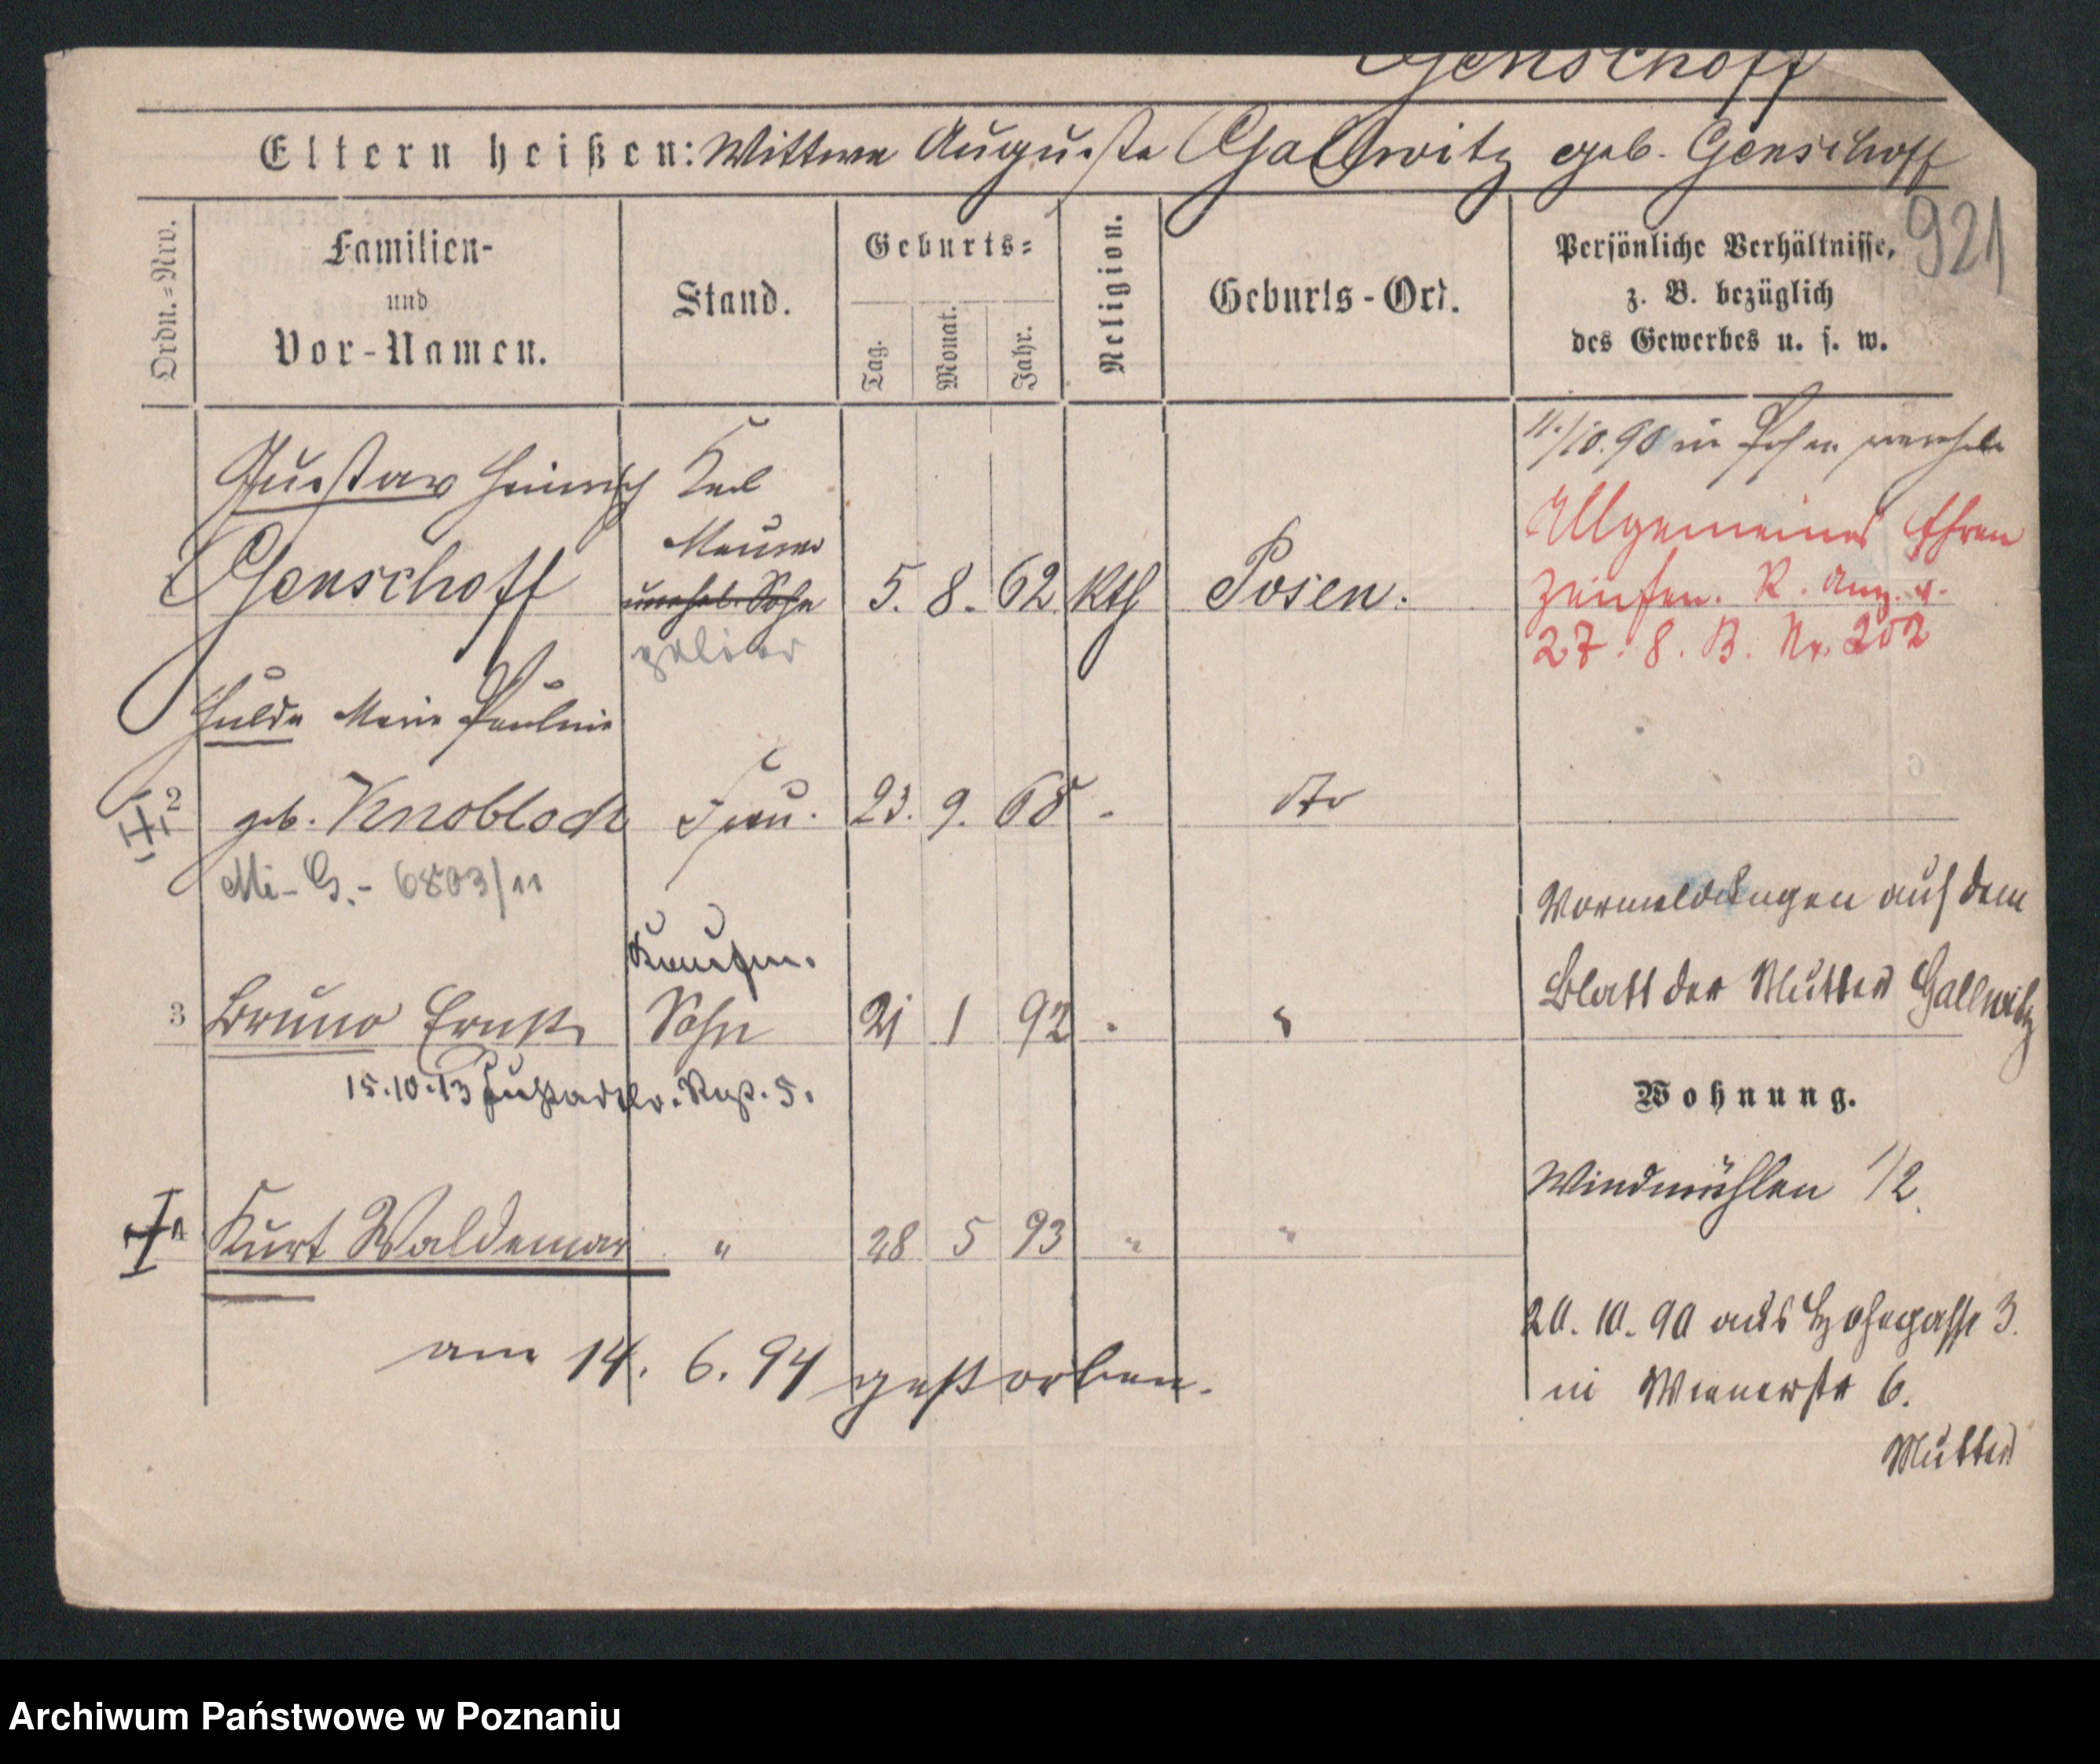 Genschoff
Eltern heißen: Wittwe Auguste Gallwitz geb. Genschoff
921
Ordn.=Nro.
Familien-
und
Vor-Namen.
Stand.
Geburts=
Tag.
Monat.
Jahr.
Religion.
Geburts-Ort.
Persönliche Verhältnisse,
z. B. bezüglich
des Gewerbes u. s. w.
11./10.90 in Posen verehel.
Gustav Heinrich Karl
Genschoff
Maurer
unehel. Sohn
polier
5. 8. 62 kth Posen.
Allgemeines Ehren
zeichen. R. Anz. v.
27. 8. B. Nr. 202
Hulda Marie Pauline
2 geb. Knobloch Frau. 23. 9. 68 - dto
Mi-G.- 6803/11
Vormeldungen auf dem
Blatt der Mutter Gallwitz
Kaufm.
3 Bruno Ernst Sohn 21 1 92
15.10.13 5.
Wohnung.
Windmühlen 1/2.
4 Kurt Waldemar " 28 5 93 " "
am 14. 6. 94 gestorben.
20. 10. 90 aus Hohegasse 3.
in Wienerstr 6.
Mutter
Archiwum Państwowe w Poznaniu